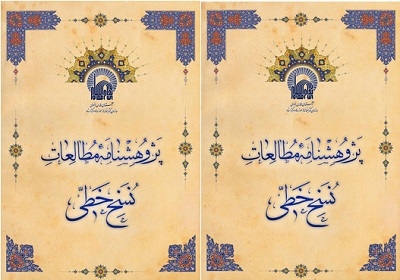 پژوهشنامهٔ مطالعات
نسخ خطی
پژوهشنامهٔ مطالعات
نسخ خطی